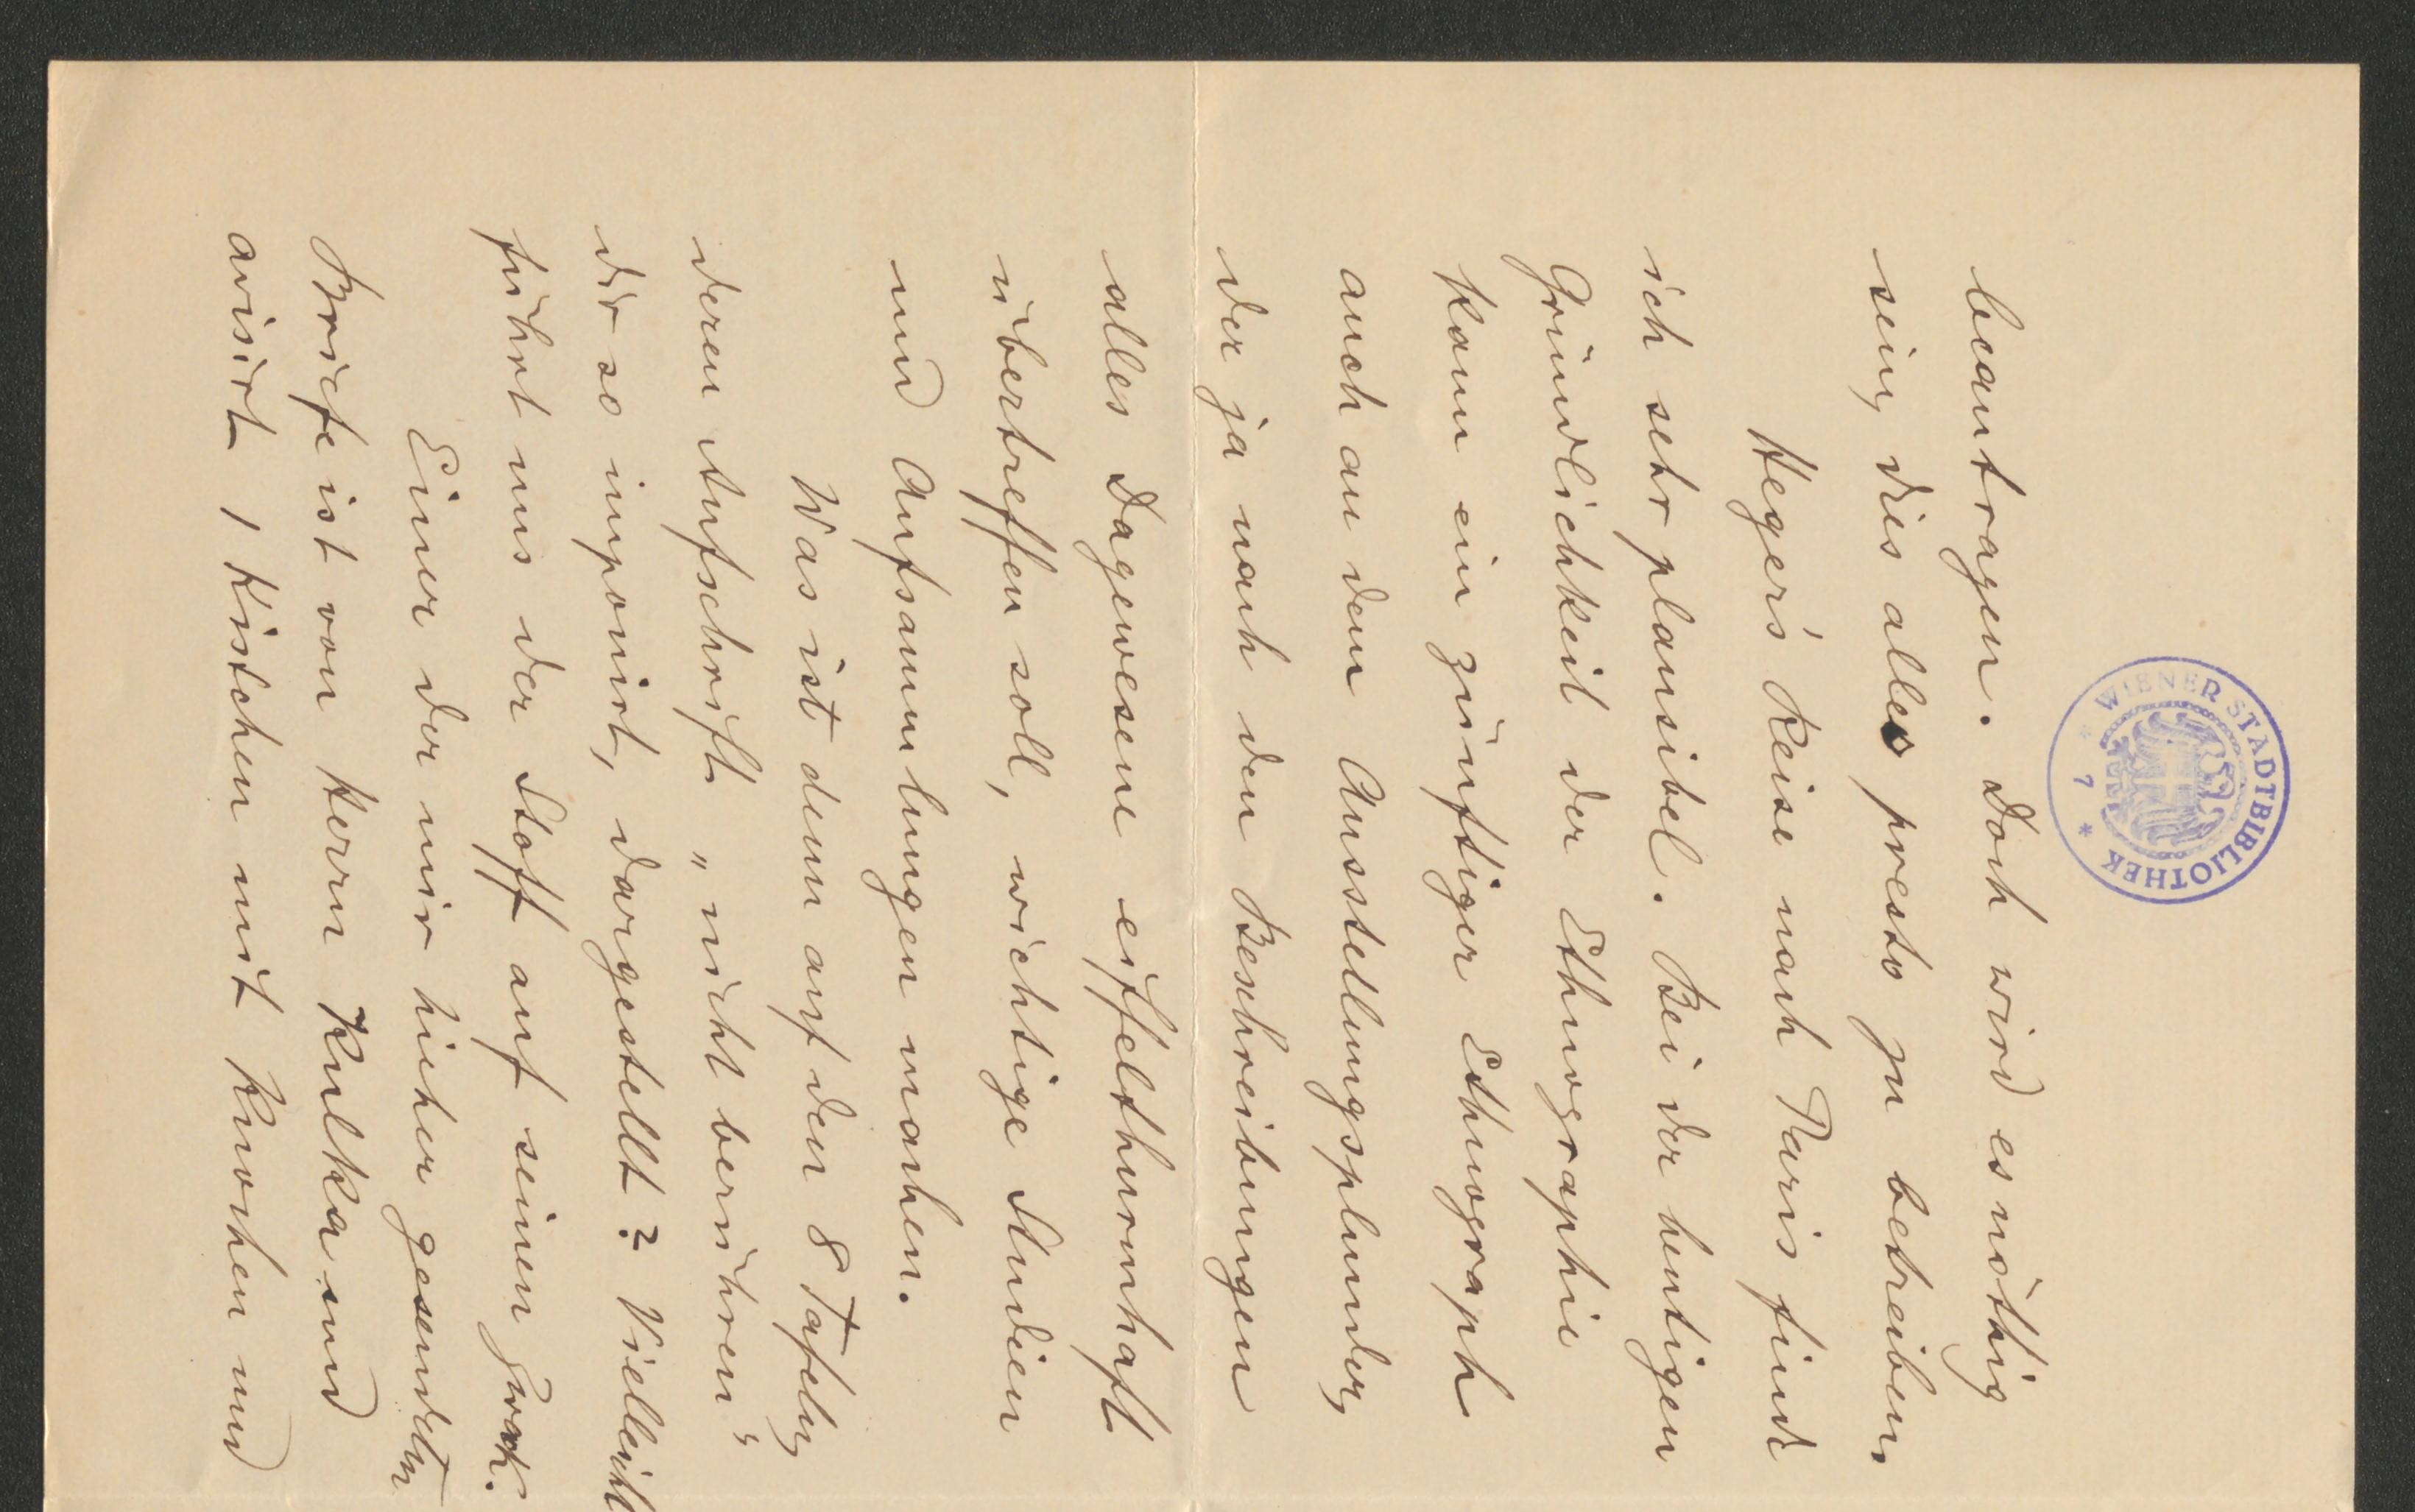 WIENER STADTBIBLIOTHEK
* 7 *
beantragen. Doch wird es nöthig
sein, dies alles presto zu betreiben,
Heger's Reise nach Paris finde
ich sehr plausibel. Bei der heutigen
Gründlichkeit der Ethnographie
kann ein zünftiger Ethnograph
auch an dem Ausstellungsplunder,
der ja nach den Beschreibungen
alles Dagewesene eiffelthurmhaft
übertreffen soll, wichtige Studien
und Aufsammlungen machen.
Was ist denn auf den 8 Tafeln,
deren Aufschrift „nicht berühren“
dir so imponirt, dargestellt? Vielleicht
führt uns der Stoff auf seinen
Einer der mir hieher gesendeten
Briefe ist von Herrn Kulka und
avisirt 1 Kistchen mit Knochen und